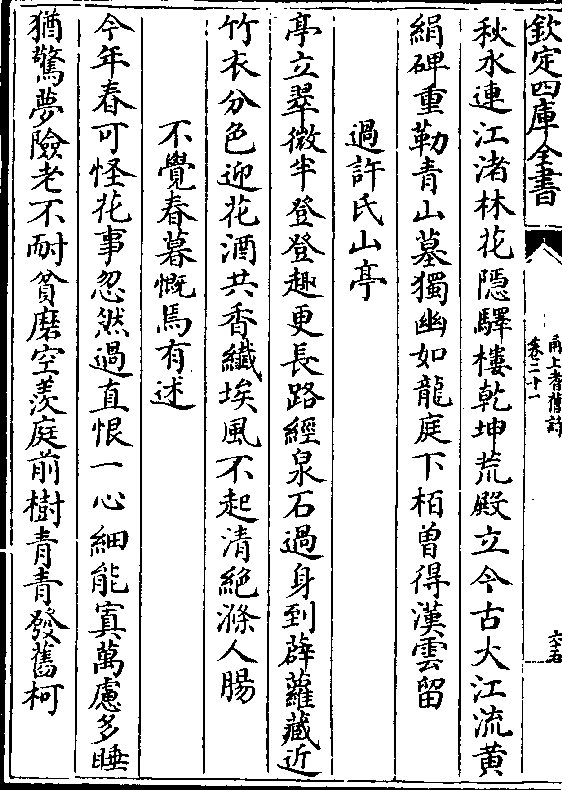 欽定四庫全書
甬上耆舊詩
卷二十一
秋水連江渚林花隱驛樓乾坤荒殿立今古大江流黄
絹碑重勒青山墓獨幽如龍庭下栢曾得漢雲留
過許氏山亭
亭立翠微半登登趣更長路經泉石過身到薜蘿藏近
竹衣分色迎花酒共香纖埃風不起清絶滌人腸
不覺春暮慨焉有述
今年春可怪花事忽然過直恨一心細能寘萬慮多睡
猶驚夢險老不耐貧磨空羨庭前樹青青發舊柯